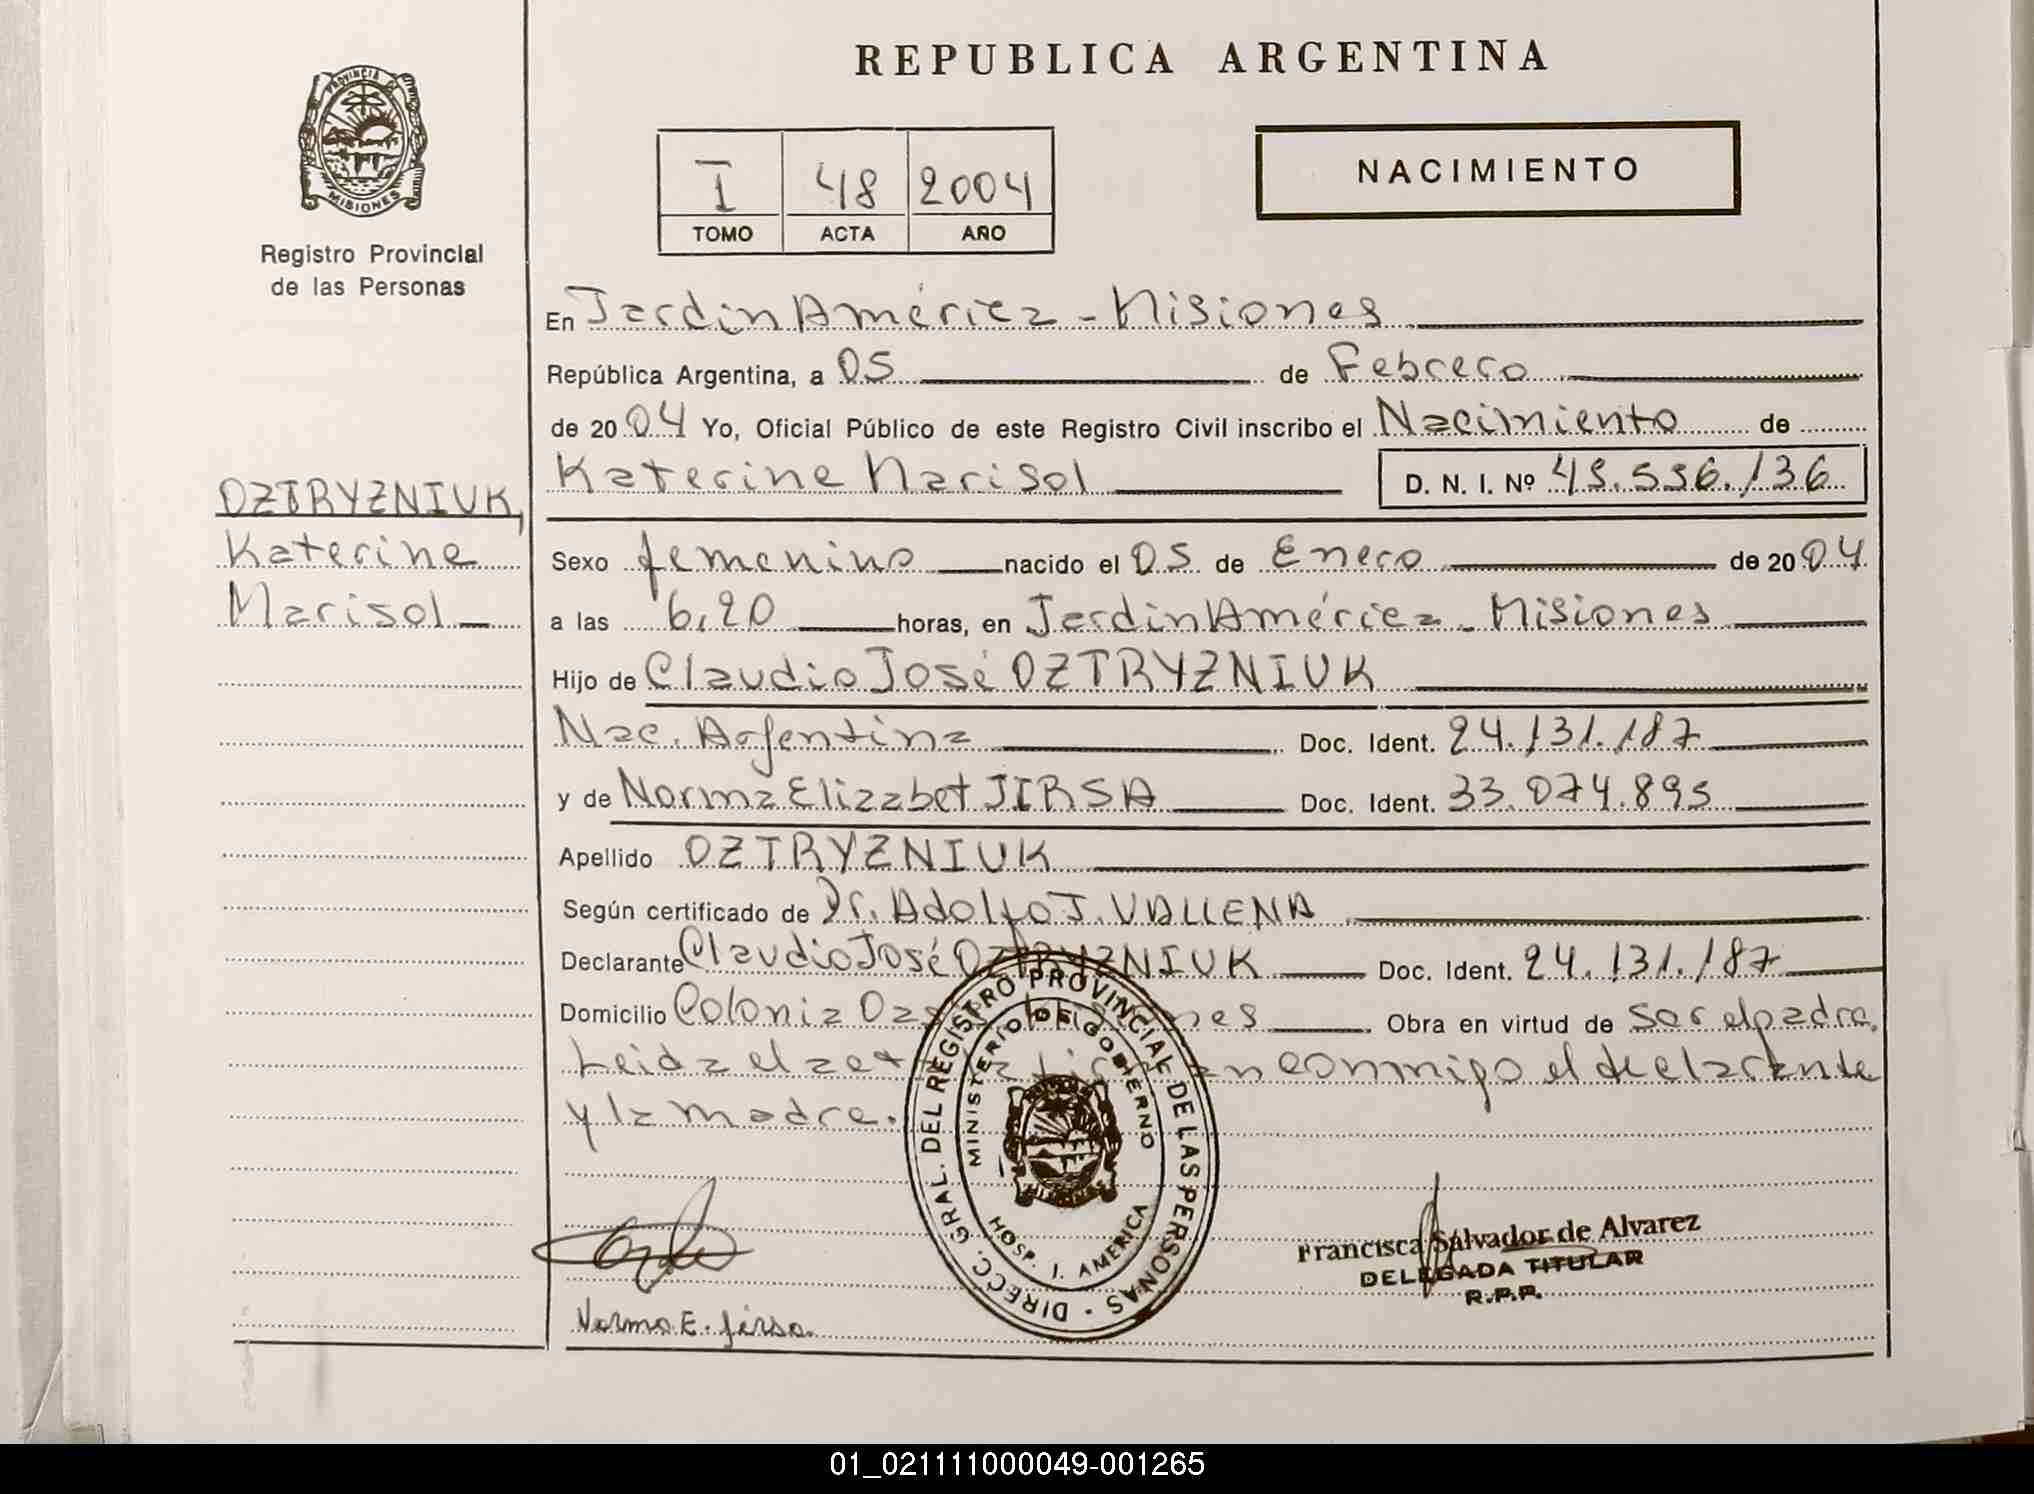 REPUBLICA ARGENTINA
PROVINCIA DE
MISIONES
Registro Provincial
de las Personas
I 48 2004
TOMO ACTA AÑO
NACIMIENTO
En Jardin América - Misiones
República Argentina, a 05 de Febrero
de 2004 Yo, Oficial Público de este Registro Civil inscribo el Nacimiento de
Katerine Marisol D. N. I. Nº 45.536.136
OZTRYZNIUK,
Katerine
Marisol
Sexo femenino nacido el 05 de Enero de 2004
a las 6,20 horas, en Jardin América - Misiones
Hijo de Claudio José OZTRYZNIUK
Nac. Argentina Doc. Ident. 24.131.187
y de Norma Elizabet JIRSA Doc. Ident. 33.074.895
Apellido OZTRYZNIUK
Según certificado de Dr. Adolfo J. VALLENA
Declarante Claudio José OZTRYZNIUK Doc. Ident. 24.131.187
Domicilio Colonia Misiones Obra en virtud de ser el padre.
Leida el acta firman conmigo el declarante
y la madre.
DIRECC. GRAL. DEL REGISTRO PROVINCIAL DE LAS PERSONAS
MINISTERIO DE GOBIERNO
MISIONES
HOSP. J. AMERICA
Francisca Salvador de Alvarez
DELEGADA TITULAR
R.P.P.
Norma E. Jirsa.
01_021111000049-001265